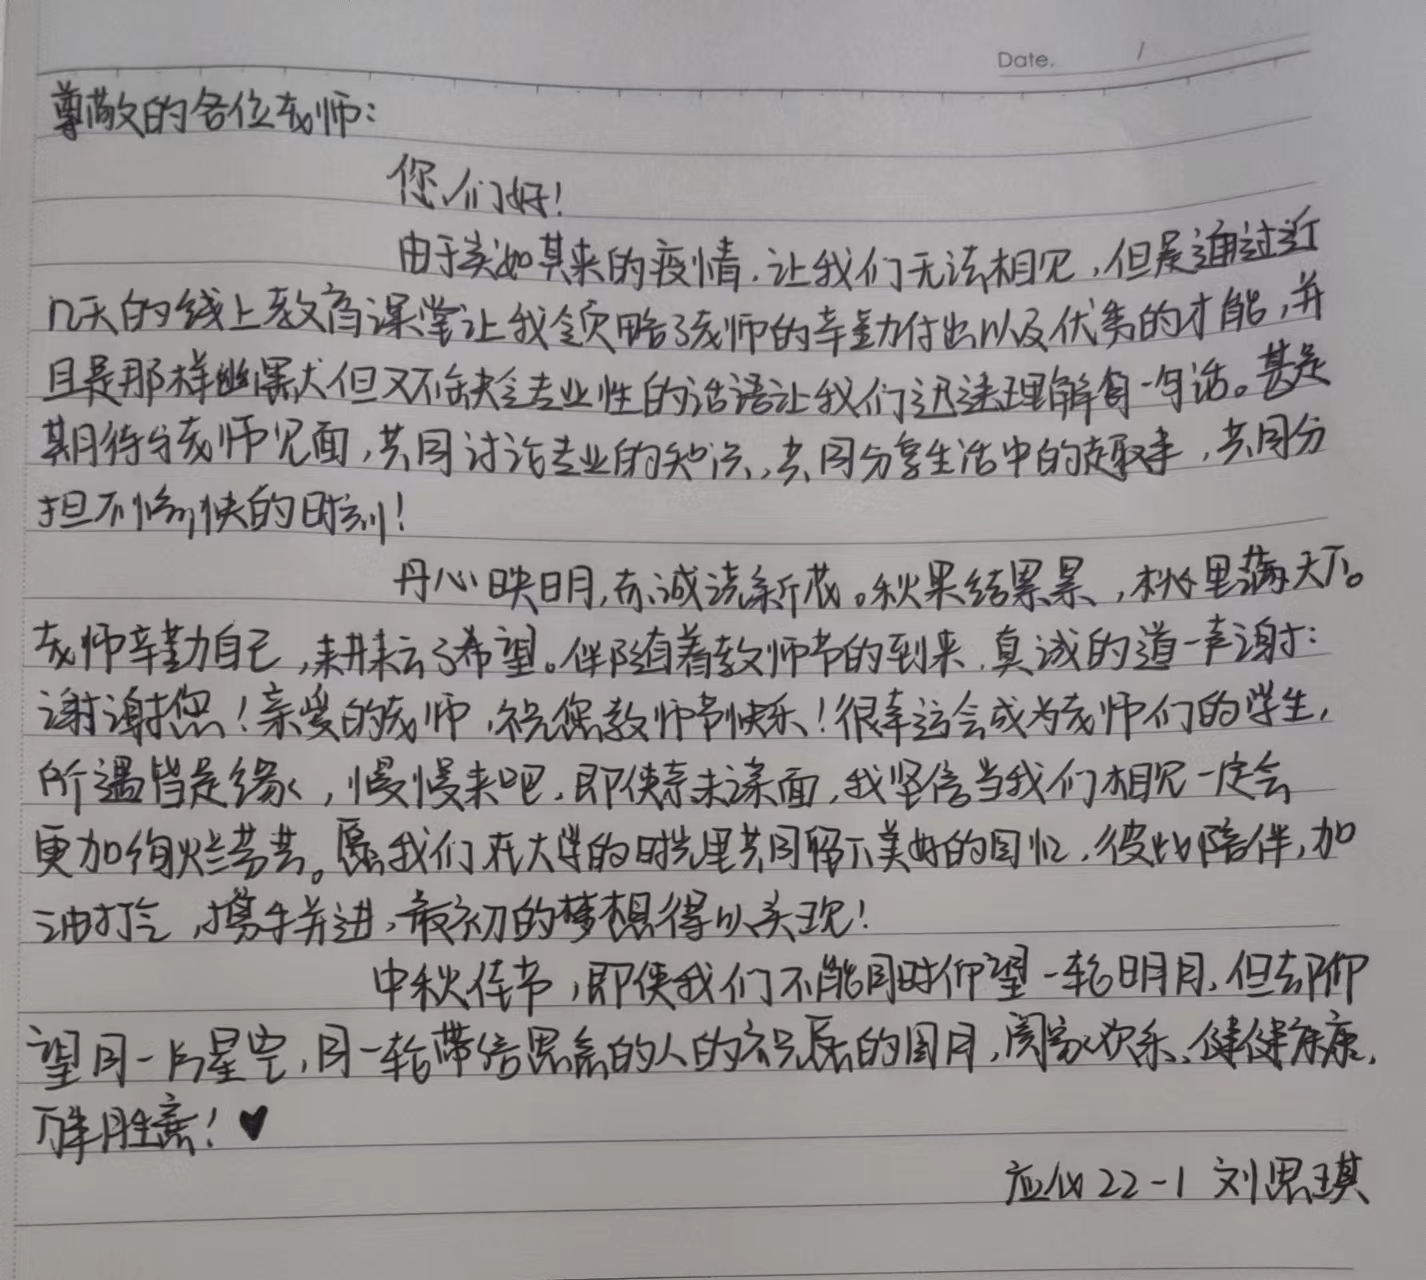 Date. /
尊敬的各位老师:
您们好!
由于突如其来的疫情.让我们无法相见,但是通过近
几天的线上教育课堂让我领略了老师的辛勤付出以及优秀的才能,并
且是那样幽默 但又不缺乏专业性的话语让我们迅速理解每一句话。甚是
期待与老师见面,共同讨论专业的知识,共同分享生活中的趣事,共同分
担不愉快的时刻!
丹心映日月,赤诚浇新花。秋果结累累,桃李满天下。
老师辛勤自己,耕耘了希望。伴随着教师节的到来,真诚的道一声谢:
谢谢您!亲爱的老师,祝您教师节快乐!很幸运会成为老师们的学生,
所遇皆是缘,慢慢来吧,即使素未谋面,我坚信当我们相见一定会
更加绚烂芬芳。愿我们在大学的时光里共同留下美好的回忆,彼此陪伴,加
油打气,携手并进,最初的梦想得以实现!
中秋佳节,即使我们不能同时仰望一轮明月,但却仰
望同一片星空,同一轮带给思念的人的祝愿的圆月,阖家欢乐、健健康康,
万事胜意!♥
应化22-1 刘思琪